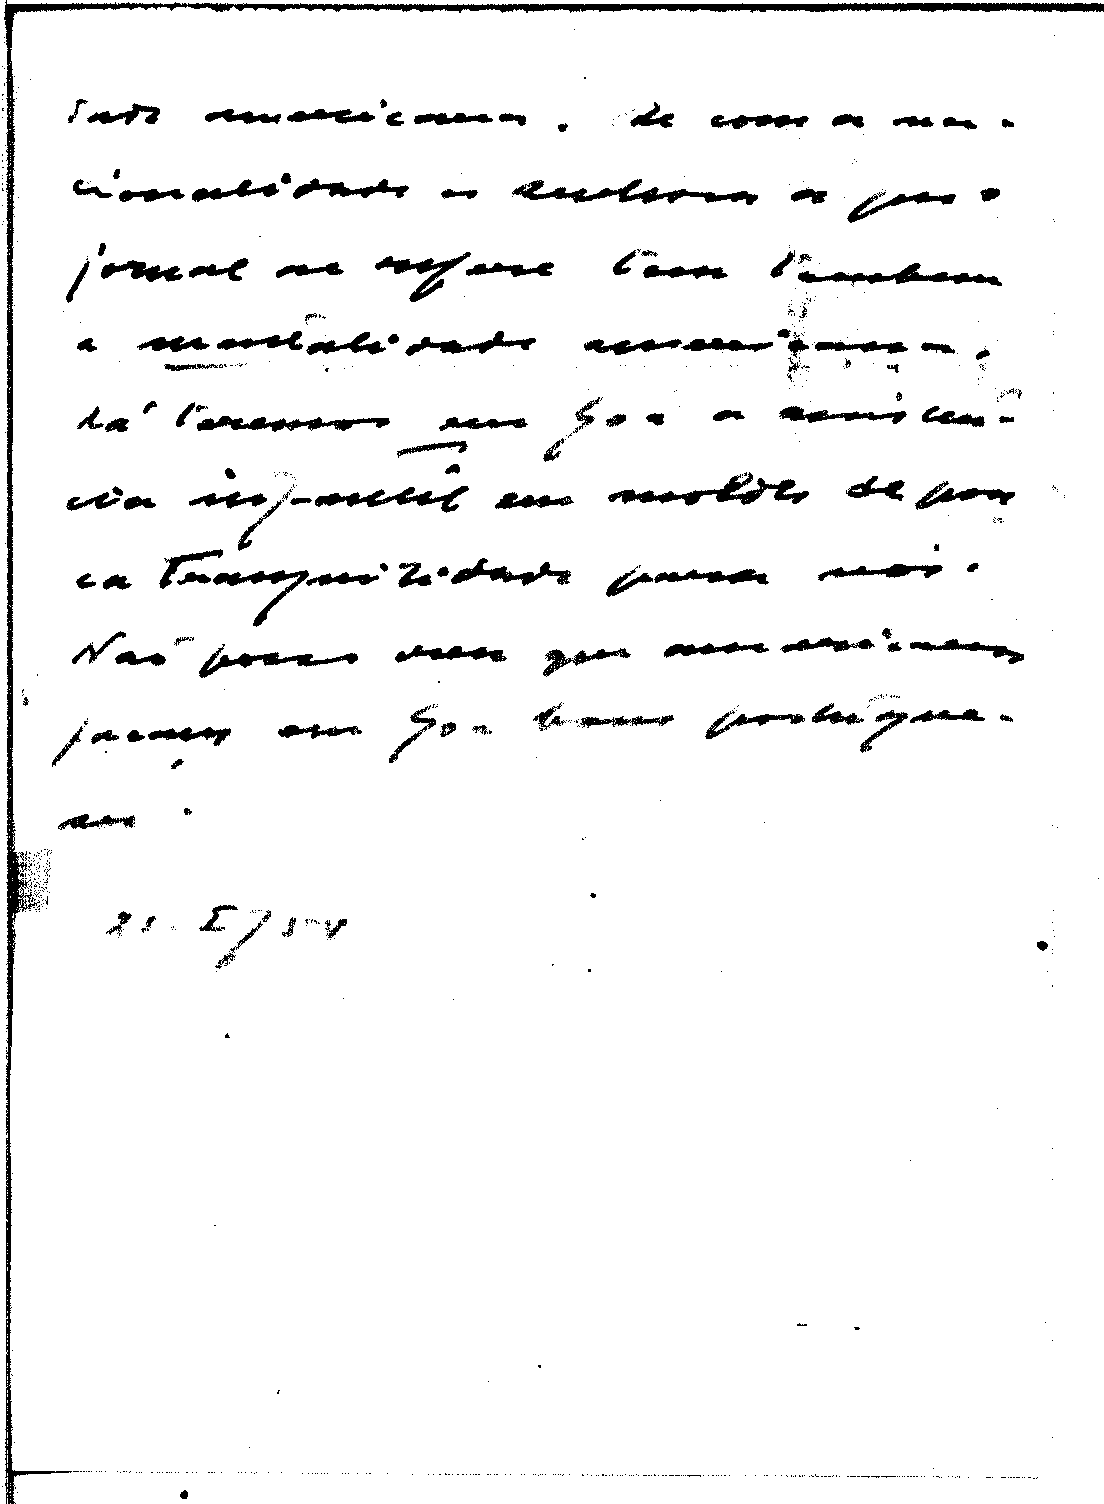 dade americana. Se com a na-
cionalidade a senhora a que o
jornal se refere tem tambem
a mentalidade americana,
lá teremos em Goa a assistên-
cia infantil em moldes de pou
ca tranquilidade para nós.
Não posso crer que americanos
façam em Goa bons portugue-
ses.
23. I / 54